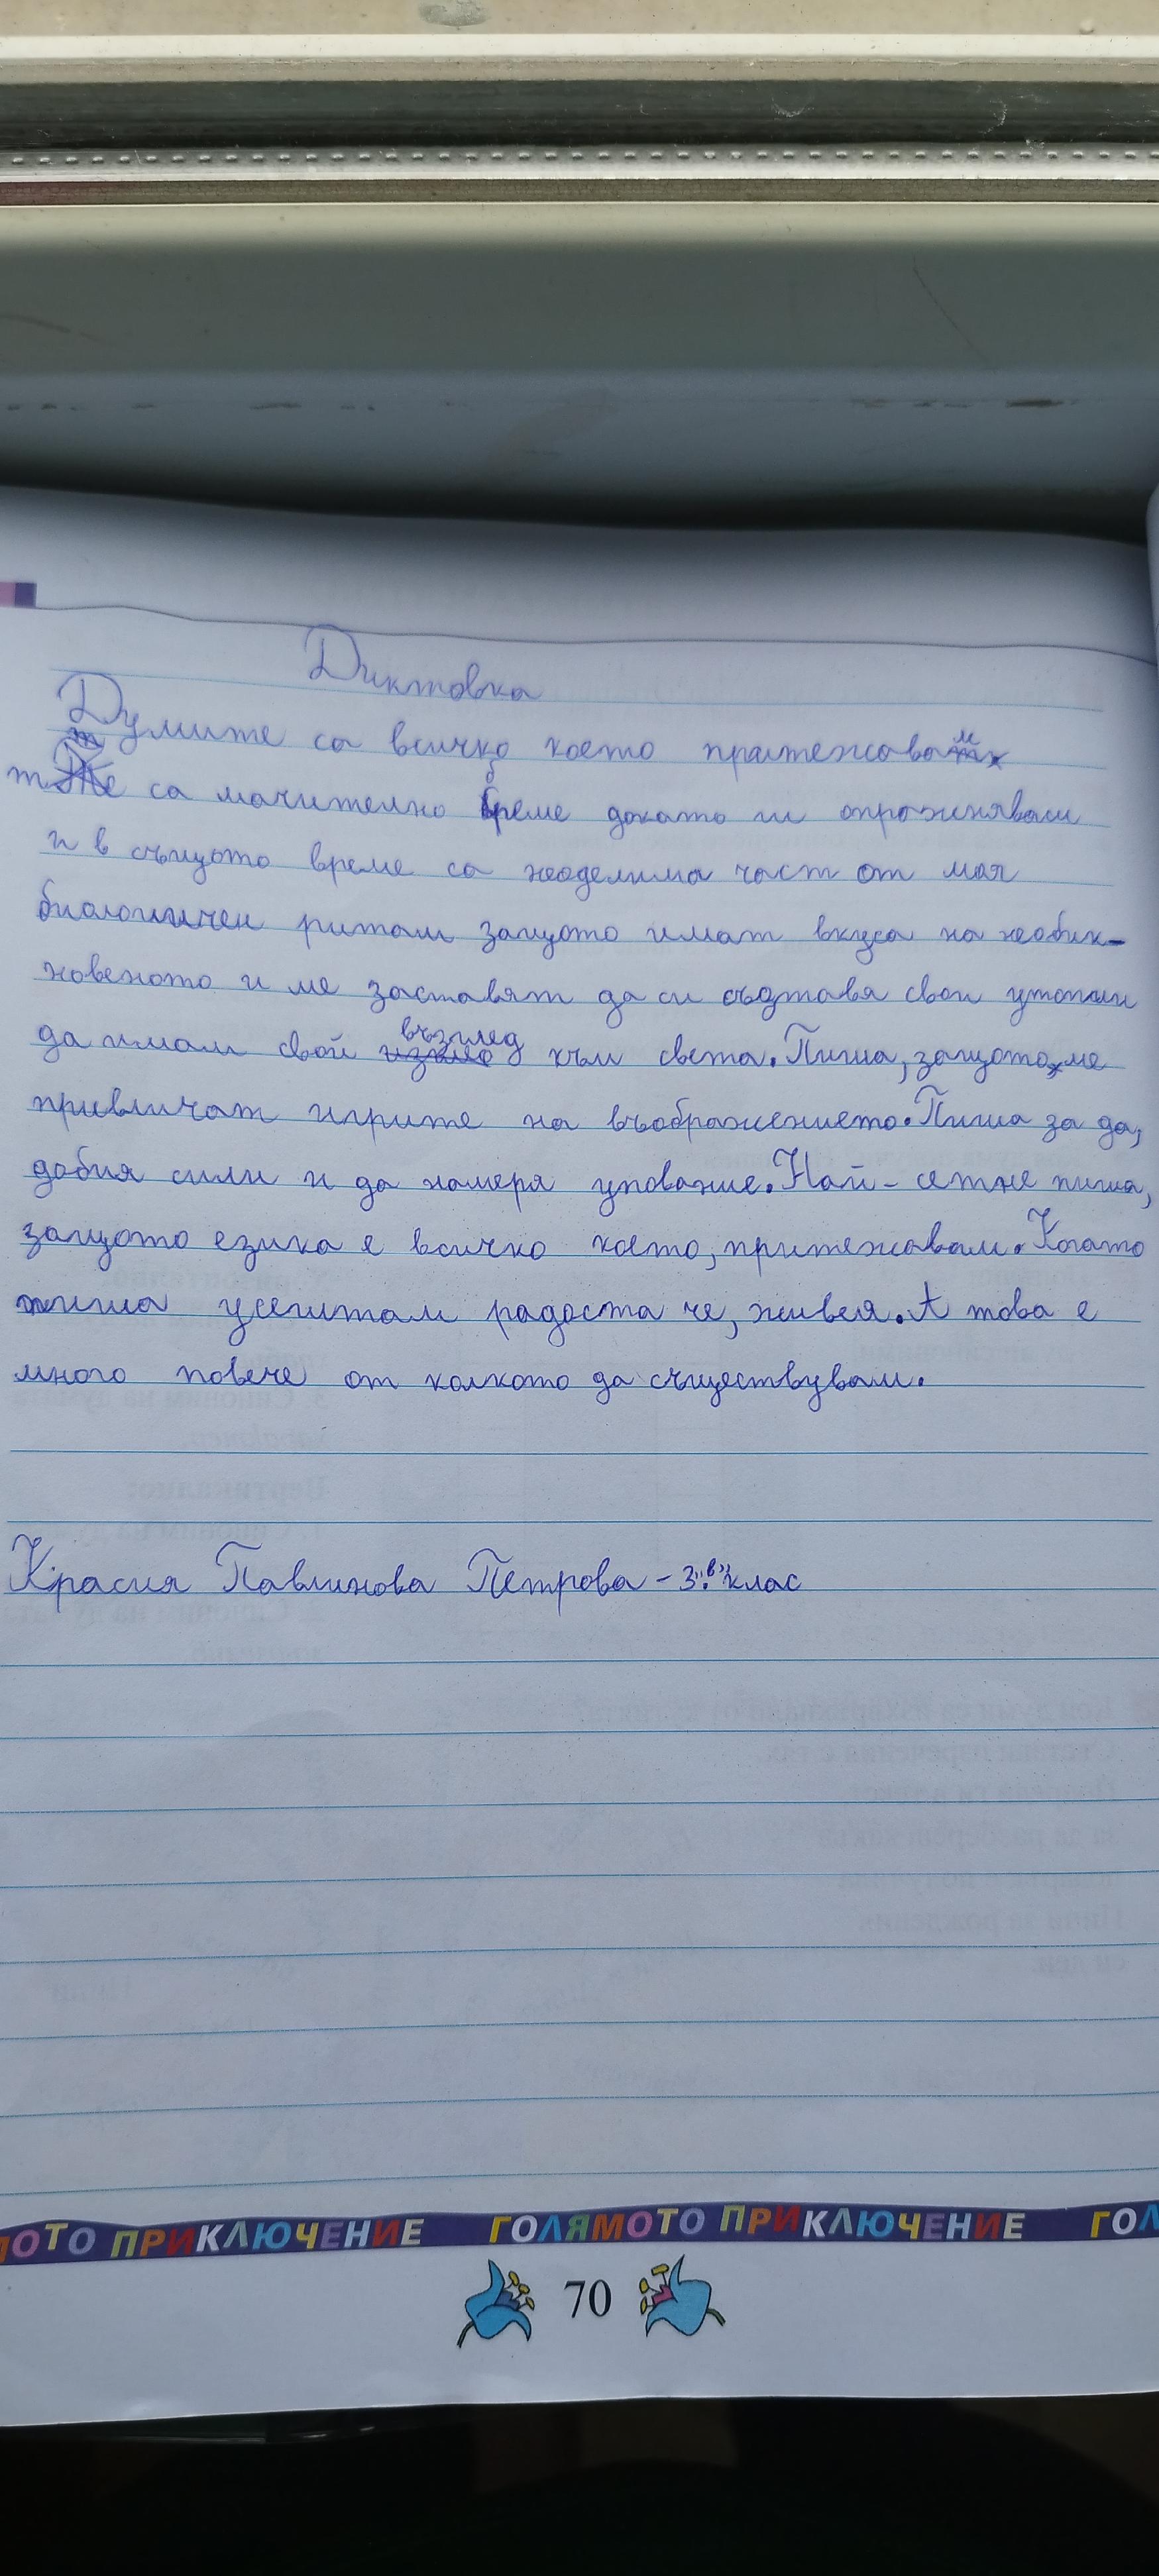 Диктовка
Думите са всичко което притежавам
те са мъчително бреме докато ги опрожнявам
и в същото време са неоделима част от мая
биологичен ритам защото имат вкуса на необик-
новеното и ме заставят да си съдтавя свои утопии
да имам свой възглед към света. Пиша, защото ме
привличат игрите на въображението. Пиша за да,
добия сили и да намеря упование. Най-сетне пиша,
защото езика е всичко което, притежавам. Когато
пиша усештам радоста че, живея. А това е
много повече от колкото да съществувам.
Красия Павлинова Петрова - 3 "в" клас
МОТО ПРИКЛЮЧЕНИЕ ГОЛЯМОТО ПРИКЛЮЧЕНИЕ ГОЛ
70